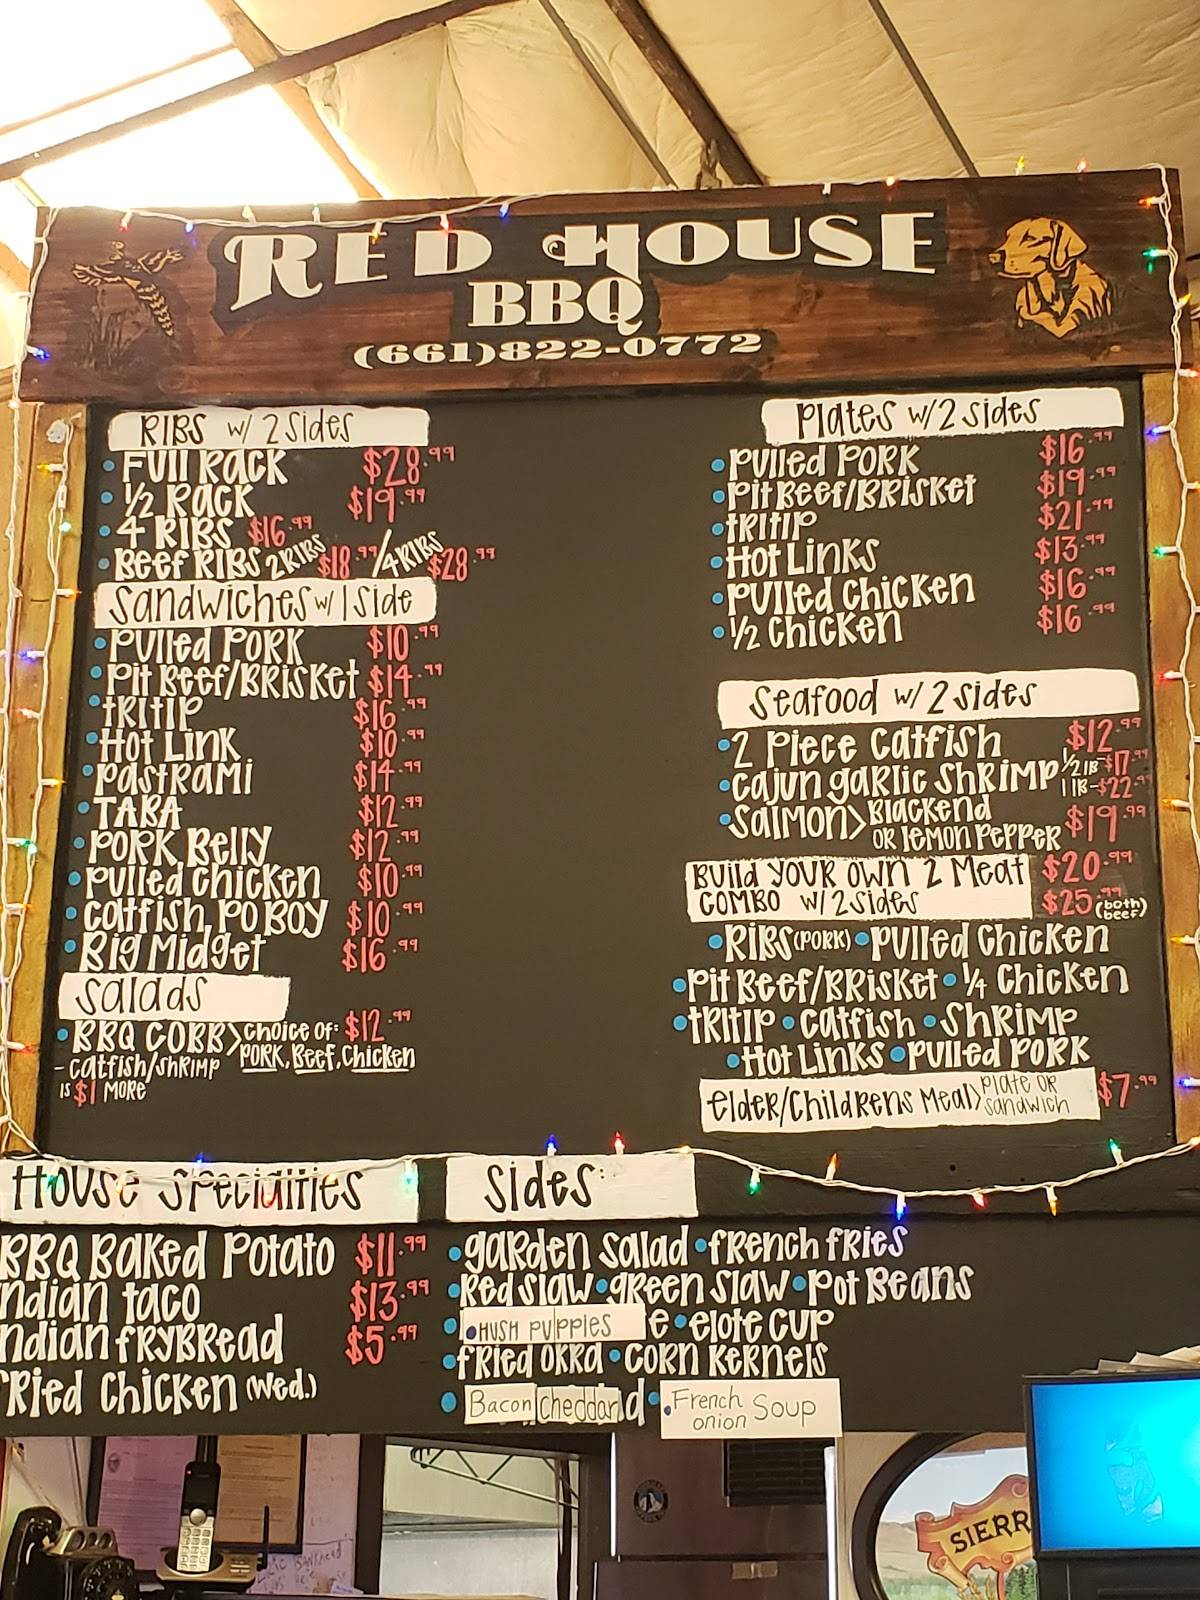 RED HOUSE
BBQ
(661)822-0772
RIBS w/ 2 sides
• Full Rack $28.99
• 1/2 Rack $19.99
• 4 RIBS $16.99
• Beef RIBS 2 RIBS $18.99 / 4 RIBS $28.99
Sandwiches w/ 1 side
• Pulled Pork $10.99
• Pit Beef/Brisket $14.99
• tRitip $16.99
• Hot Link $10.99
• Pastrami $14.99
• TABA $12.99
• Pork Belly $12.99
• Pulled Chicken $10.99
• Catfish, Po Boy $10.99
• Big Midget $16.99
Salads
• BBQ COBB > Choice of: $12.99
PORK, Beef, Chicken
- Catfish/Shrimp
is $1 MORE
Plates w/ 2 sides
• Pulled Pork $16.99
• Pit Beef/Brisket $19.99
• tRitip $21.99
• Hot Links $13.99
• Pulled Chicken $16.99
• 1/2 Chicken $16.99
Seafood w/ 2 sides
• 2 Piece Catfish $12.99
• Cajun Garlic Shrimp 1/2 lb-$17.99
1 lb-$22.99
• Salmon > Blackend
OR lemon Pepper $19.99
Build your own 2 Meat $20.99
COMBO w/ 2 sides $25.99 (both beef)
• Ribs (PORK) • Pulled Chicken
• Pit Beef/Brisket • 1/4 Chicken
• tRitip • Catfish • Shrimp
• Hot Links • Pulled Pork
Elder/Childrens Meal > Plate or sandwich $7.99
House Specialties
BBQ Baked Potato $11.99
ndian taco $13.99
ndian fRyBread $5.99
fRied Chicken (Wed.)
Sides
• garden salad • french fries
• Red slaw • green slaw • Pot Beans
• HUSH PUPPIES e • elote cup
• fried okra • corn kernels
• Bacon Cheddar d • French onion Soup
SIERR